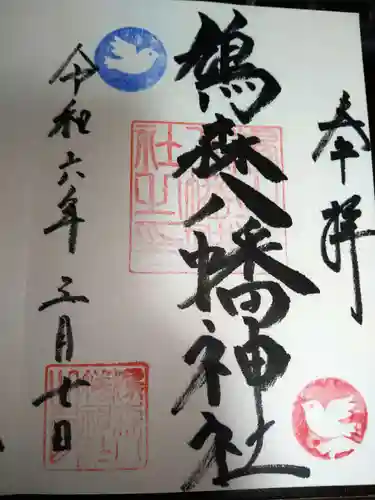 奉拝
鶴森八幡神社
令和六年三月廿日